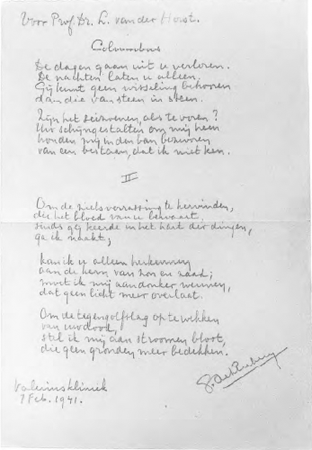 Voor Prof. Dr. L. van der Horst.
Columbus
De dagen gaan uit u verloren.
De nachten laten u alleen.
Gij kunt geen wisseling behooren
dan die van steen in steen.
Zijn het seizoenen, als te voren?
Uw schijngestalten om mij heen
houden mij in den ban bezworen
van een bestaan, dat ik niet ken.
II
Om de zielsverrassing te hervinden,
die het bloed van u bewaart,
sinds gij keerde in het hart der dingen,
ga ik naakt;
kan ik u alleen herkennen
aan de kern van zon en zaad;
moet ik mij aan donker wennen,
dat geen licht meer overlaat.
Om de tegengolfslag op te wekken
van uw dood,
stel ik mij aan stroomen bloot,
die geen gronden meer bedekken.
Valeriuskliniek
7 Feb. 1941.